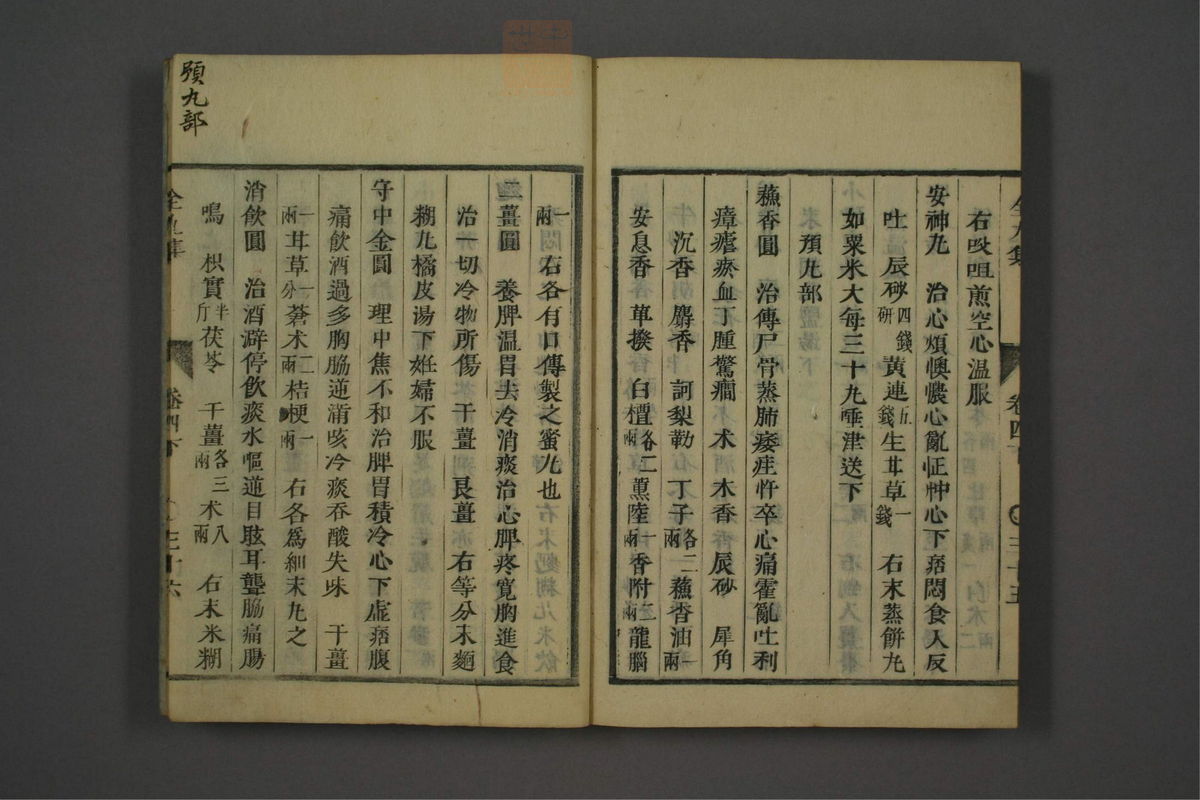 右㕮咀煎空心温服
安神丸 治心煩懊憹心亂怔忡心下痞悶食入反
吐 辰砂四錢研 黃連五錢 生甘草一錢 右末蒸餅丸
如粟米大每三十丸唾津送下
預丸部
蘓香圓 治傳尸骨蒸肺痿疰忤卒心痛霍亂吐利
瘴瘧瘀血丁腫驚癎 木木香 辰砂 犀角
沉香 麝香 訶梨勒 丁子各二兩 蘓香油一兩
安息香 蓽撥 白檀各二兩 薫陸一兩 香附三兩 龍腦
一兩 右各有口傳製之蜜丸也
二薑圓 養脾温胃去冷消痰治心脾疼寛胸進食
治一切冷物所傷 干薑 良薑 右等分末麵
糊丸橘皮湯下妊婦不服
守中金圓 理中焦不和治脾胃積冷心下虚痞腹
痛飲酒過多胸脇逆滿咳冷痰吞酸失味 干薑
一兩 甘草一分 蒼术二兩 桔梗一兩 右各爲細末丸之
消飲圓 治酒澼停飲痰水嘔逆目眩耳聾脇痛腸
鳴 枳實半斤 茯苓 干薑各三兩 术八兩 右末米糊
預丸部
全九集
卷四下
三十五
三十六